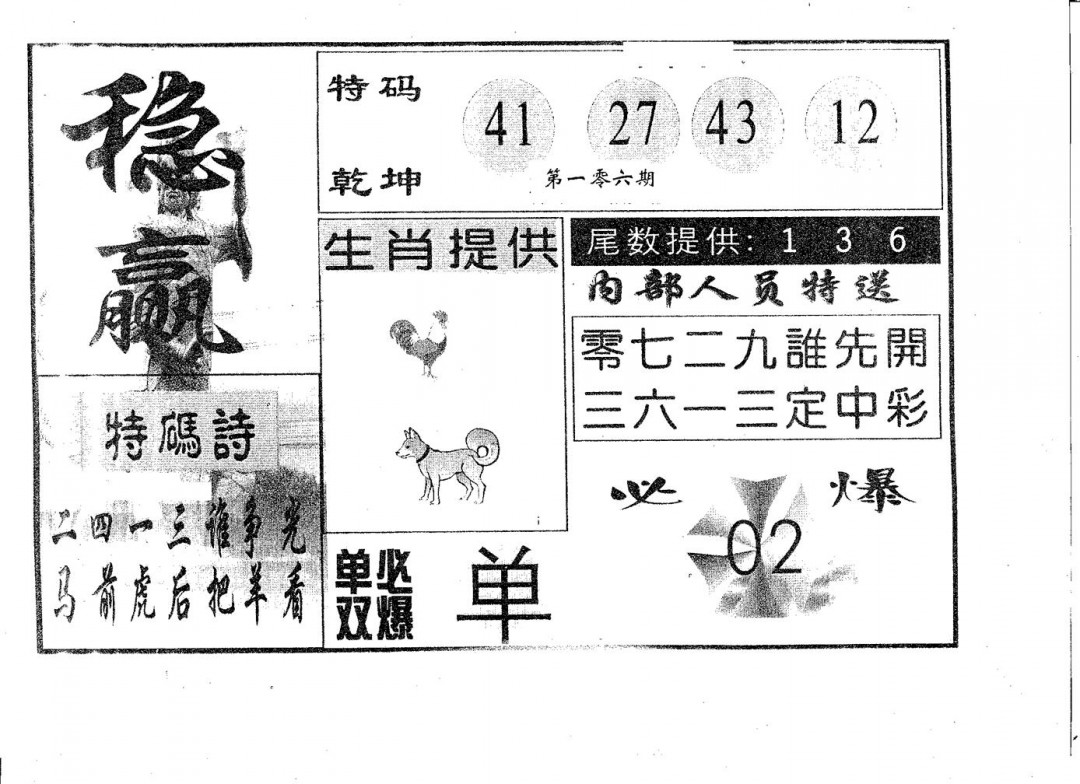 稳赢
特码
乾坤
41 27 43 12
第一零六期
生肖提供
尾数提供: 1 3 6
内部人员特送
零七二九誰先開
三六一三定中彩
特碼詩
二四一三谁争光
马前虎后把羊看
单双必爆
单
必爆
02